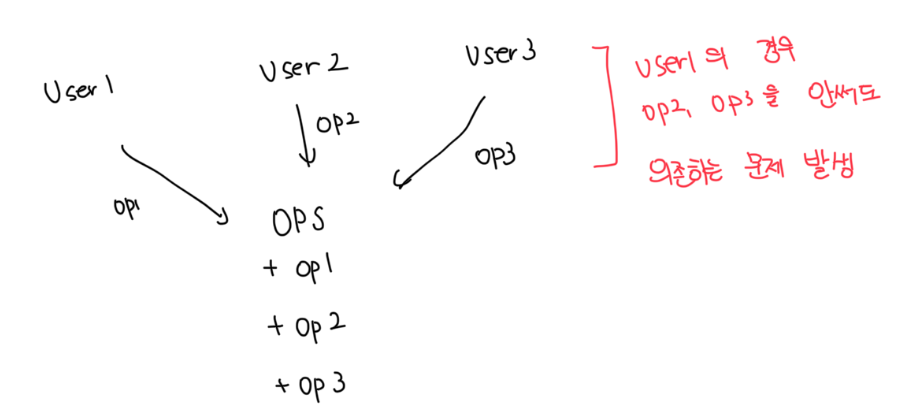 User1
User2
User3
op1
op2
op3
OPS
+ op1
+ op2
+ op3
User1의 경우
op2, op3을 안써도
의존하는 문제 발생